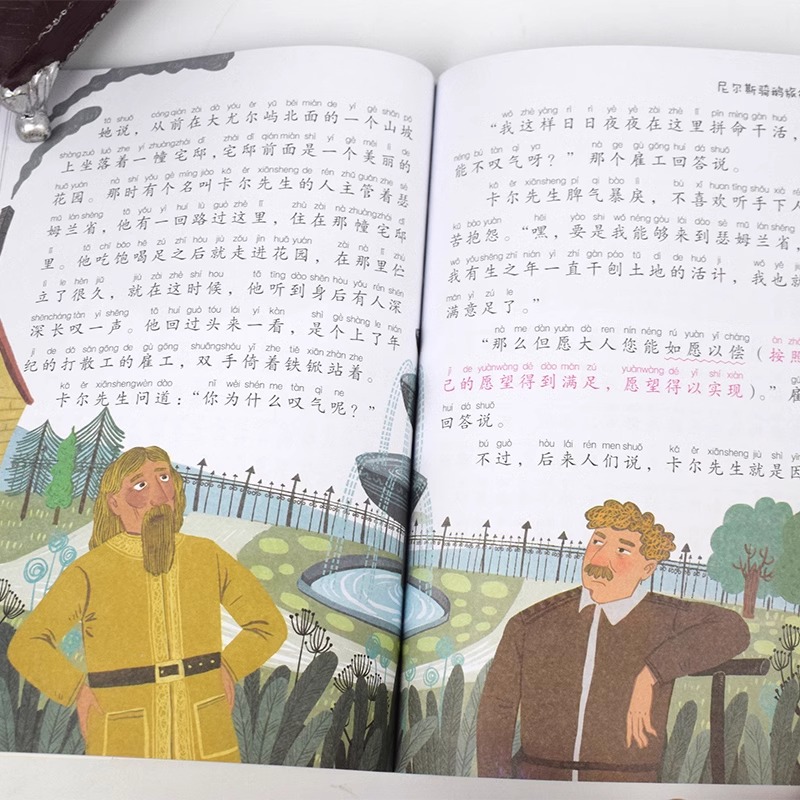 tā shuō cóngqián zài dà yóu ěr yǔ běi miàn de yí gè shān pō
她说，从前在大尤尔屿北面的一个山坡
shàngzuò luò zhe yì zhuàngzhái dǐ zhái dǐ qiánmiàn shì yí gè měi lì de
上坐落着一幢宅邸，宅邸前面是一个美丽的
huā yuán nà shí yǒu gè míng jiào kǎ ěr xiānsheng de rén zhǔ guǎn zhe sè
花园。那时有个名叫卡尔先生的人主管着瑟
mǔ lán shěng tā yǒu yì huí lù guò zhè lǐ zhù zài nà zhuàngzhái dǐ
姆兰省，他有一回路过这里，住在那幢宅邸
lǐ tā chī bǎo hē zú zhī hòu jiù zǒu jìn huā yuán zài nà lǐ zhù
里。他吃饱喝足之后就走进花园，在那里伫
lì le hěn jiǔ jiù zài zhè shí hou tā tīng dào shēn hòu yǒu rén shēn
立了很久，就在这时候，他听到身后有人深
shēncháng tàn yì shēng tā huí guò tóu lái yí kàn shì gè shàng le nián
深长叹一声。他回过头来一看，是个上了年
jì de dǎ sǎn gōng de gù gōng shuāngshǒu yǐ zhe tiě xiān zhàn zhe
纪的打散工的雇工，双手倚着铁锨站着。
kǎ ěr xiānshengwèn dào nǐ wèi shén me tàn qì ne
卡尔先生问道：“你为什么叹气呢？”
尼尔斯骑鹅旅
wǒ zhè yàng rì rì yè yè zài zhè lǐ pīn mìng gàn huó
“我这样日日夜夜在这里拼命干活，
néng bú tàn qì ya nà ge gù gōng huí dá shuō
能不叹气呀？”那个雇工回答说。
kǎ ěr xiānsheng pí qi bào lì bù xǐ huan tīng shǒu xià
卡尔先生脾气暴戾，不喜欢听手下人
kǔ bào yuàn hēi yào shi wǒ néng gòu lái dào sè mǔ lán shěng
苦抱怨。“嘿，要是我能够来到瑟姆兰省，
wǒ yǒu shēng zhī nián yì zhí gàn páo tǔ dì de huó jì wǒ yě jiù
我有生之年一直干刨土地的活计，我也就
mǎn yì zú le
满意足了。”
nà me dàn yuàn dà ren nín néng rú yuàn yǐ cháng àn zhào
“那么但愿大人您能如愿以偿（按照
jǐ de yuànwàng dé dào mǎn zú yuànwàng dé yǐ shí xiàn
己的愿望得到满足，愿望得以实现）。”雇
huí dá shuō
回答说。
bú guò hòu lái rén men shuō kǎ ěr xiānsheng jiù shì yīn
不过，后来人们说，卡尔先生就是因